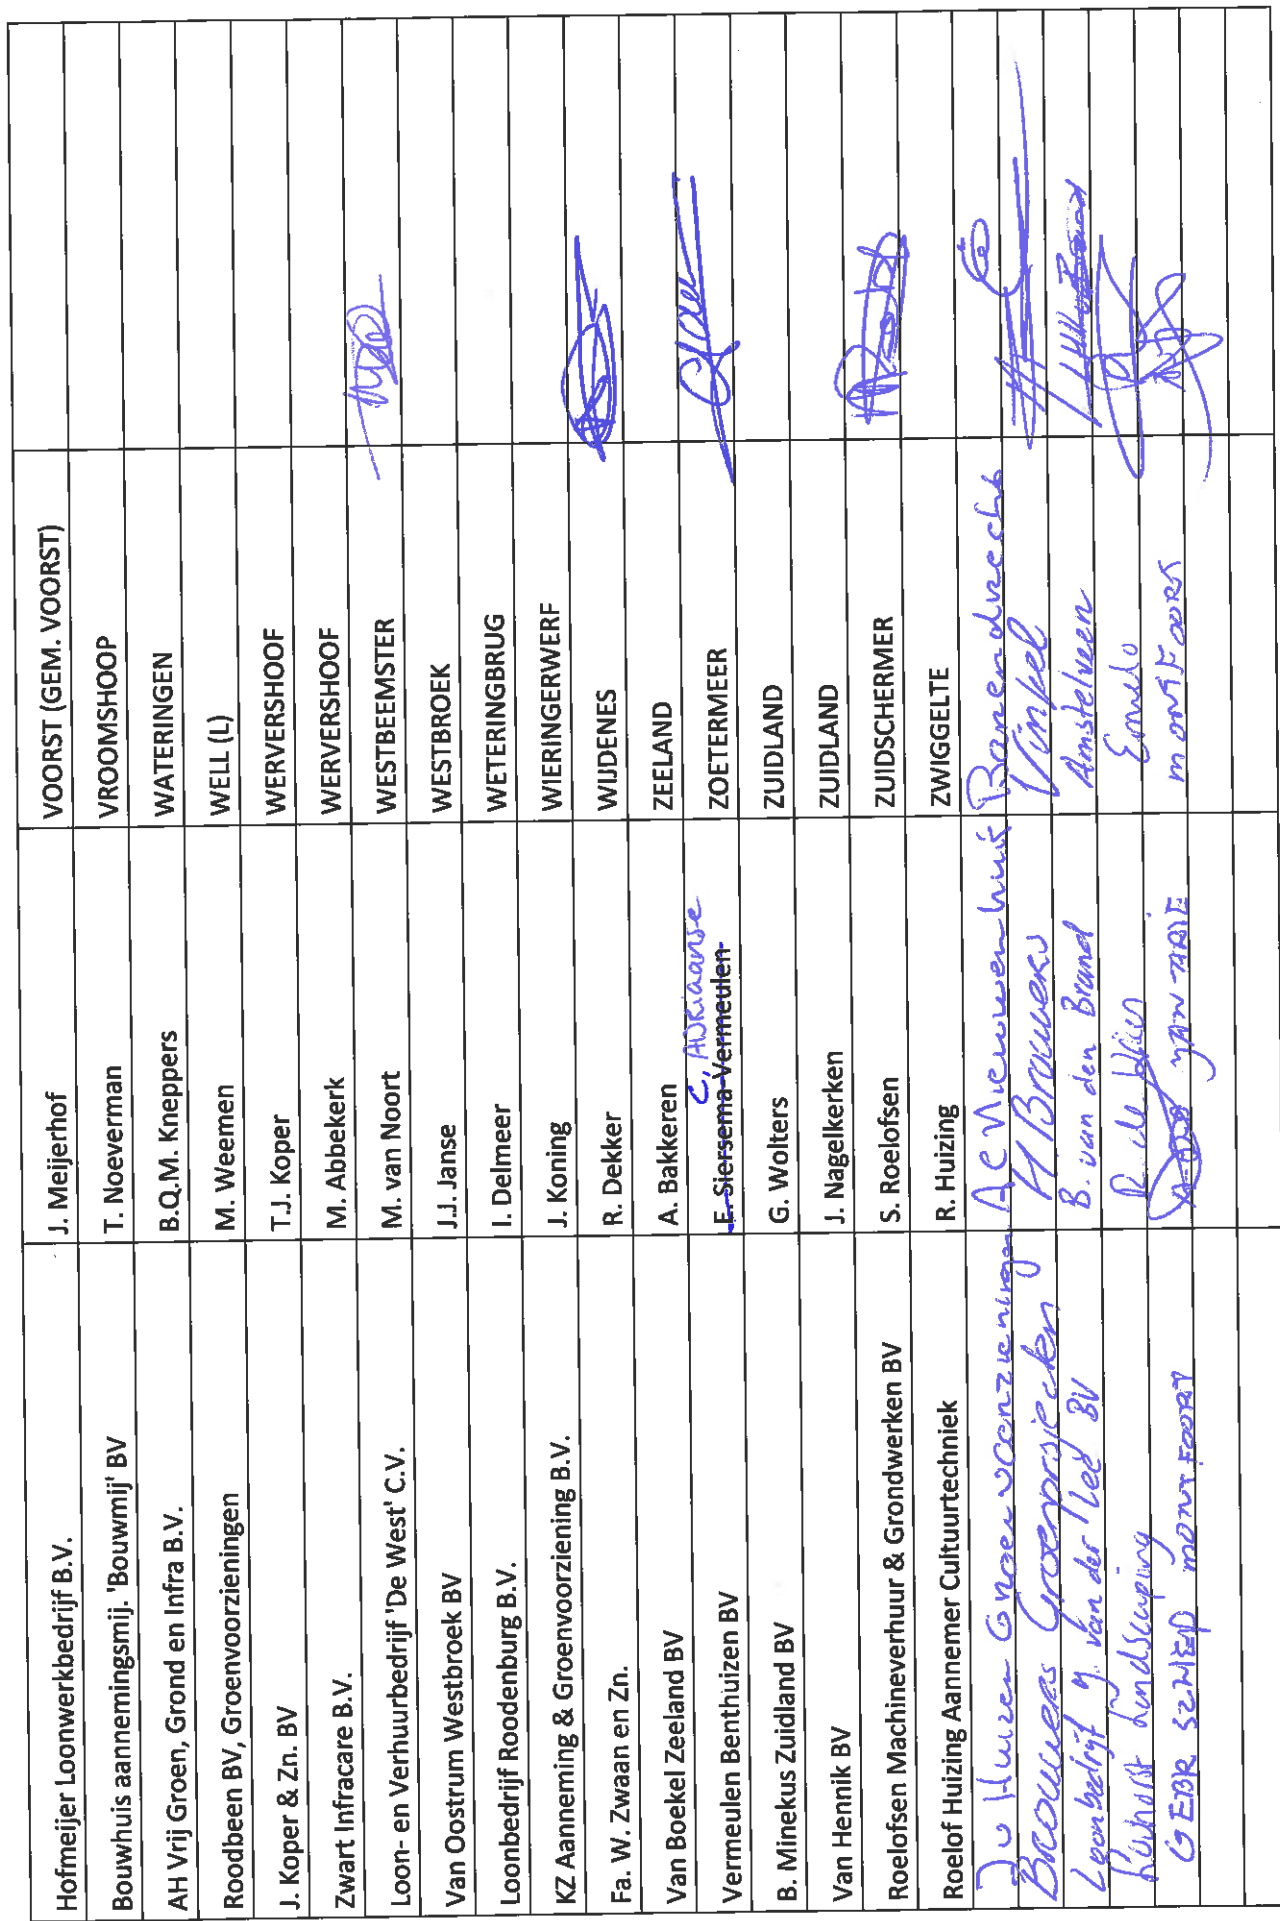 Hofmeijer Loonwerkbedrijf B.V. J. Meijerhof VOORST (GEM. VOORST)
Bouwhuis aannemingsmij. 'Bouwmij' BV T. Noeverman VROOMSHOOP
AH Vrij Groen, Grond en Infra B.V. B.Q.M. Kneppers WATERINGEN
Roodbeen BV, Groenvoorzieningen M. Weemen WELL (L)
J. Koper & Zn. BV T.J. Koper WERVERSHOOF
Zwart Infracare B.V. M. Abbekerk WERVERSHOOF
Loon- en Verhuurbedrijf 'De West' C.V. M. van Noort WESTBEEMSTER
Van Oostrum Westbroek BV J.J. Janse WESTBROEK
Loonbedrijf Roodenburg B.V. I. Delmeer WETERINGBRUG
KZ Aanneming & Groenvoorziening B.V. J. Koning WIERINGERWERF
Fa. W. Zwaan en Zn. R. Dekker WIJDENES
Van Boekel Zeeland BV A. Bakkeren ZEELAND
Vermeulen Benthuizen BV E. Siersema-Vermeulen C. ADRIAANSE ZOETERMEER
B. Minekus Zuidland BV G. Wolters ZUIDLAND
Van Hennik BV J. Nagelkerken ZUIDLAND
Roelofsen Machineverhuur & Grondwerken BV S. Roelofsen ZUIDSCHERMER
Roelof Huizing Aannemer Cultuurtechniek R. Huizing ZWIGGELTE
Huizen Groenvoorzieningen AC Nieuwenhuis Barendrecht
Brouwers Groenprojecten H Brouwers Vinkel
Loonbedrijf van der Lee BV B. van den Brand Amstelveen
Landscaping R. de Ermelo
GEBR MONTFOORT JAN ARIE MONTFOORT